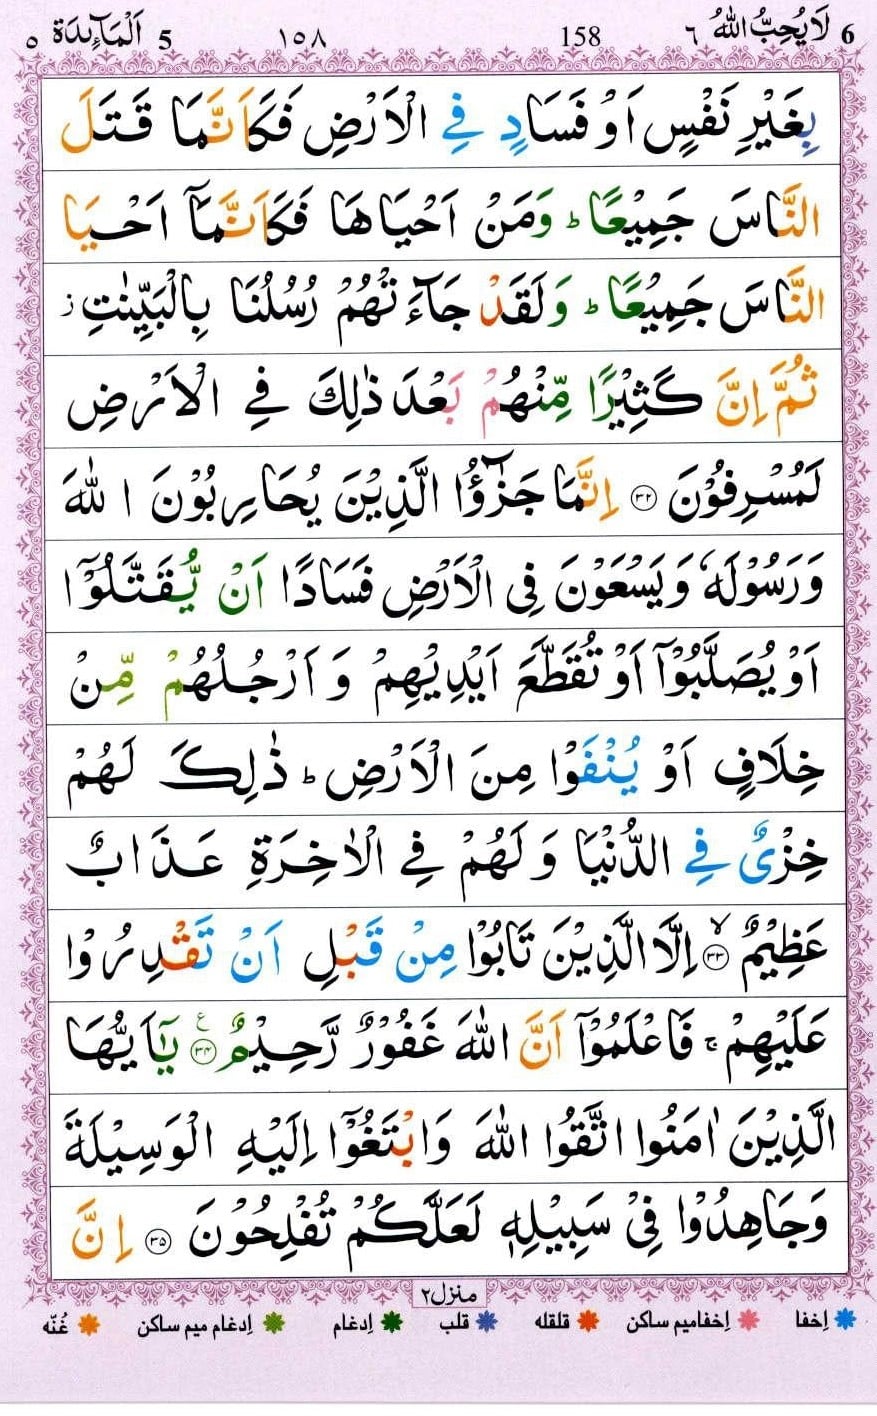 6 لَا يُحِبُّ اللهُ ٦ 158 ١٥٨ 5 اَلْمَآئِدَة ٥
بِغَيْرِ نَفْسٍ اَوْ فَسَادٍ فِي الْاَرْضِ فَكَاَنَّمَا قَتَلَ
النَّاسَ جَمِيْعًا ؕ وَمَنْ اَحْيَاهَا فَكَاَنَّمَاۤ اَحْيَا
النَّاسَ جَمِيْعًا ؕ وَلَقَدْ جَآءَتْهُمْ رُسُلُنَا بِالْبَيِّنٰتِ ز
ثُمَّ اِنَّ كَثِيْرًا مِّنْهُمْ بَعْدَ ذٰلِكَ فِي الْاَرْضِ
لَمُسْرِفُوْنَ ﴿۳۲﴾ اِنَّمَا جَزٰٓؤُا الَّذِيْنَ يُحَارِبُوْنَ اللهَ
وَرَسُوْلَهٗ وَيَسْعَوْنَ فِي الْاَرْضِ فَسَادًا اَنْ يُّقَتَّلُوْۤا
اَوْ يُصَلَّبُوْۤا اَوْ تُقَطَّعَ اَيْدِيْهِمْ وَاَرْجُلُهُمْ مِّنْ
خِلَافٍ اَوْ يُنْفَوْا مِنَ الْاَرْضِ ؕ ذٰلِكَ لَهُمْ
خِزْيٌ فِي الدُّنْيَا وَلَهُمْ فِي الْاٰخِرَةِ عَذَابٌ
عَظِيْمٌ ﴿۳۳﴾ۙ اِلَّا الَّذِيْنَ تَابُوْا مِنْ قَبْلِ اَنْ تَقْدِرُوْا
عَلَيْهِمْ ۚ فَاعْلَمُوْۤا اَنَّ اللهَ غَفُوْرٌ رَّحِيْمٌ ﴿۳۴﴾ ع يٰۤاَيُّهَا
الَّذِيْنَ اٰمَنُوا اتَّقُوا اللهَ وَابْتَغُوْۤا اِلَيْهِ الْوَسِيْلَةَ
وَجَاهِدُوْا فِيْ سَبِيْلِهٖ لَعَلَّكُمْ تُفْلِحُوْنَ ﴿۳۵﴾ اِنَّ
منزل۲
اِخفا اِخفامیم ساکن قلقله قلب اِدغام اِدغام میم ساکن غُنّه